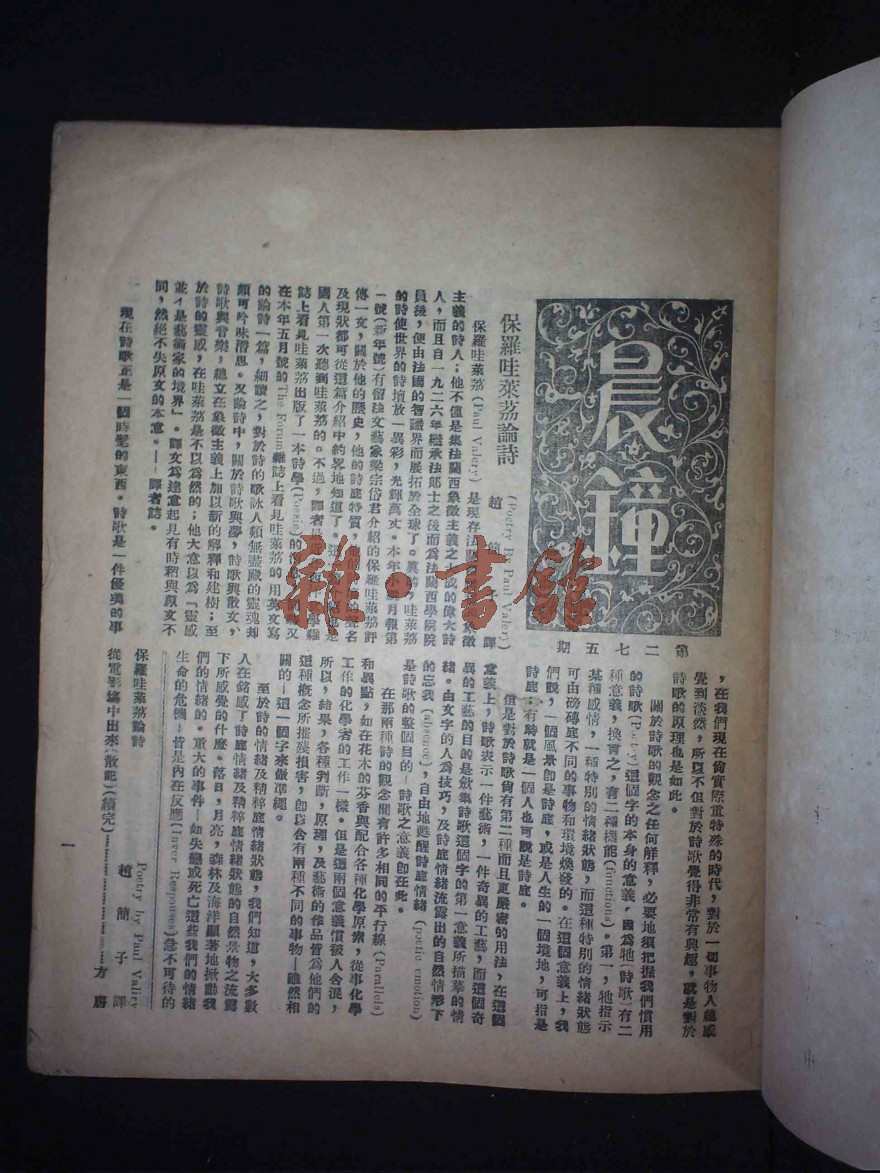 晨鐘
第二七五期
保羅哇萊荔論詩
(Poetry By Paul Valery)
趙簡子譯
保羅哇萊荔(Paul Valery)是現存法
主義的詩人;他不僅是集法蘭西象徵主義之
成的偉大詩
人,而且自一九二六年繼承法郎士之後而爲法蘭西學院院
員後,便由法國的智識界而展拓於全球了。眞的,哇萊荔
的詩使世界的詩壇放一異彩,光輝萬丈。本年小
月報第
一號(新年號)有留法文藝家梁宗岱君介紹的保羅哇萊荔評
傳一文,關於他的歷史,他的詩底特質,
名
及現狀都可從這篇介紹中約畧地知道了。這
是
國人第一次聽到哇萊荔的。不過,譯者最近
學雜
誌上看見哇萊荔出版了一本詩學(Poesie)的
又
在本年五月號的The Forum雜誌上看見哇萊荔的用英文寫
的論詩一篇,細讀之,對於詩的歌詠人類無盡藏的靈魂却
頗可吟味潛思。又論詩中,關於詩歌與夢,詩歌與散文,
詩歌與音樂,總立在象徵主義上加以新的解釋和建樹;至
於詩的靈感,在哇萊荔是不以爲然的;他大意以為『靈感
並不是藝術家的境界』。譯文爲達意起見有時稍與原文不
同,然絕不失原文的本意。——譯者誌。
現在詩歌正是一個時髦的東西。詩歌是一件優美的事
,在我們現在尙實際重特殊的時代,對於一切事物人總感
覺到淡然,所以不但對於詩歌覺得非常有興趣,就是對於
詩歌的原理也是如此。
關於詩歌的觀念之任何解釋,必要地須把握我們慣用
的詩(Poetry)這個字的本身的意義,因爲牠(詩歌)有二
種意義,換言之,有二種機能(functions)。第一,牠指示
某種感情,一種特別的情緒狀態,而這種特別的情緒狀態
可由磅礴底不同的事物和環境煥發的。在這個意義上,我
們說,一個風景卽是詩底,或是人生的一個境地,可指是
詩底;有時就是一個人也可說是詩底。
但是對於詩歌尙有第二種而且更嚴密的用法,在這個
意義上,詩歌表示一件藝術,一件奇異的工藝,而這個奇
異的工藝的目的是欲集詩歌這個字的第一意義所描摹的情
緒。由文字的人爲技巧,及詩底情緒流露出的自然情形下
的忘我(absence),自由地甦醒詩底情緒(poetic emotion)
是詩歌的整個目的—詩歌之意義卽在此。
在那兩種詩的觀念間有許多相同的平行線(Parallels)
和異點,如在花木的芬香與配合各種化學原素,從事化學
工作的化學者的工作一樣。但是這兩個意義慣被人含混,
所以,結果,各種判斷,原理,及藝術的作品皆爲他們的
這種概念所摧殘損害,卽以含有兩種不同的事物—雖然相
關的—這一個字來做準繩。
至於詩的情緒及精粹底情緒狀態,我們知道,大多數
人在銘感了詩底情緒及精粹底情緒狀態的自然景物之流露
下所感覺的什麼。落日,月亮,森林及海洋顯著地掀動我
們的情緒的。重大的事件—如失戀或死亡這些我們的情緒
生命的危機—皆是內在反應(Inver Responses)急不可待的
保羅哇萊荔論詩
Poetry by Paul Valiry
趙簡子譯
從電影塲中出來(散記)(續完)………………方唐
一
雜·書館